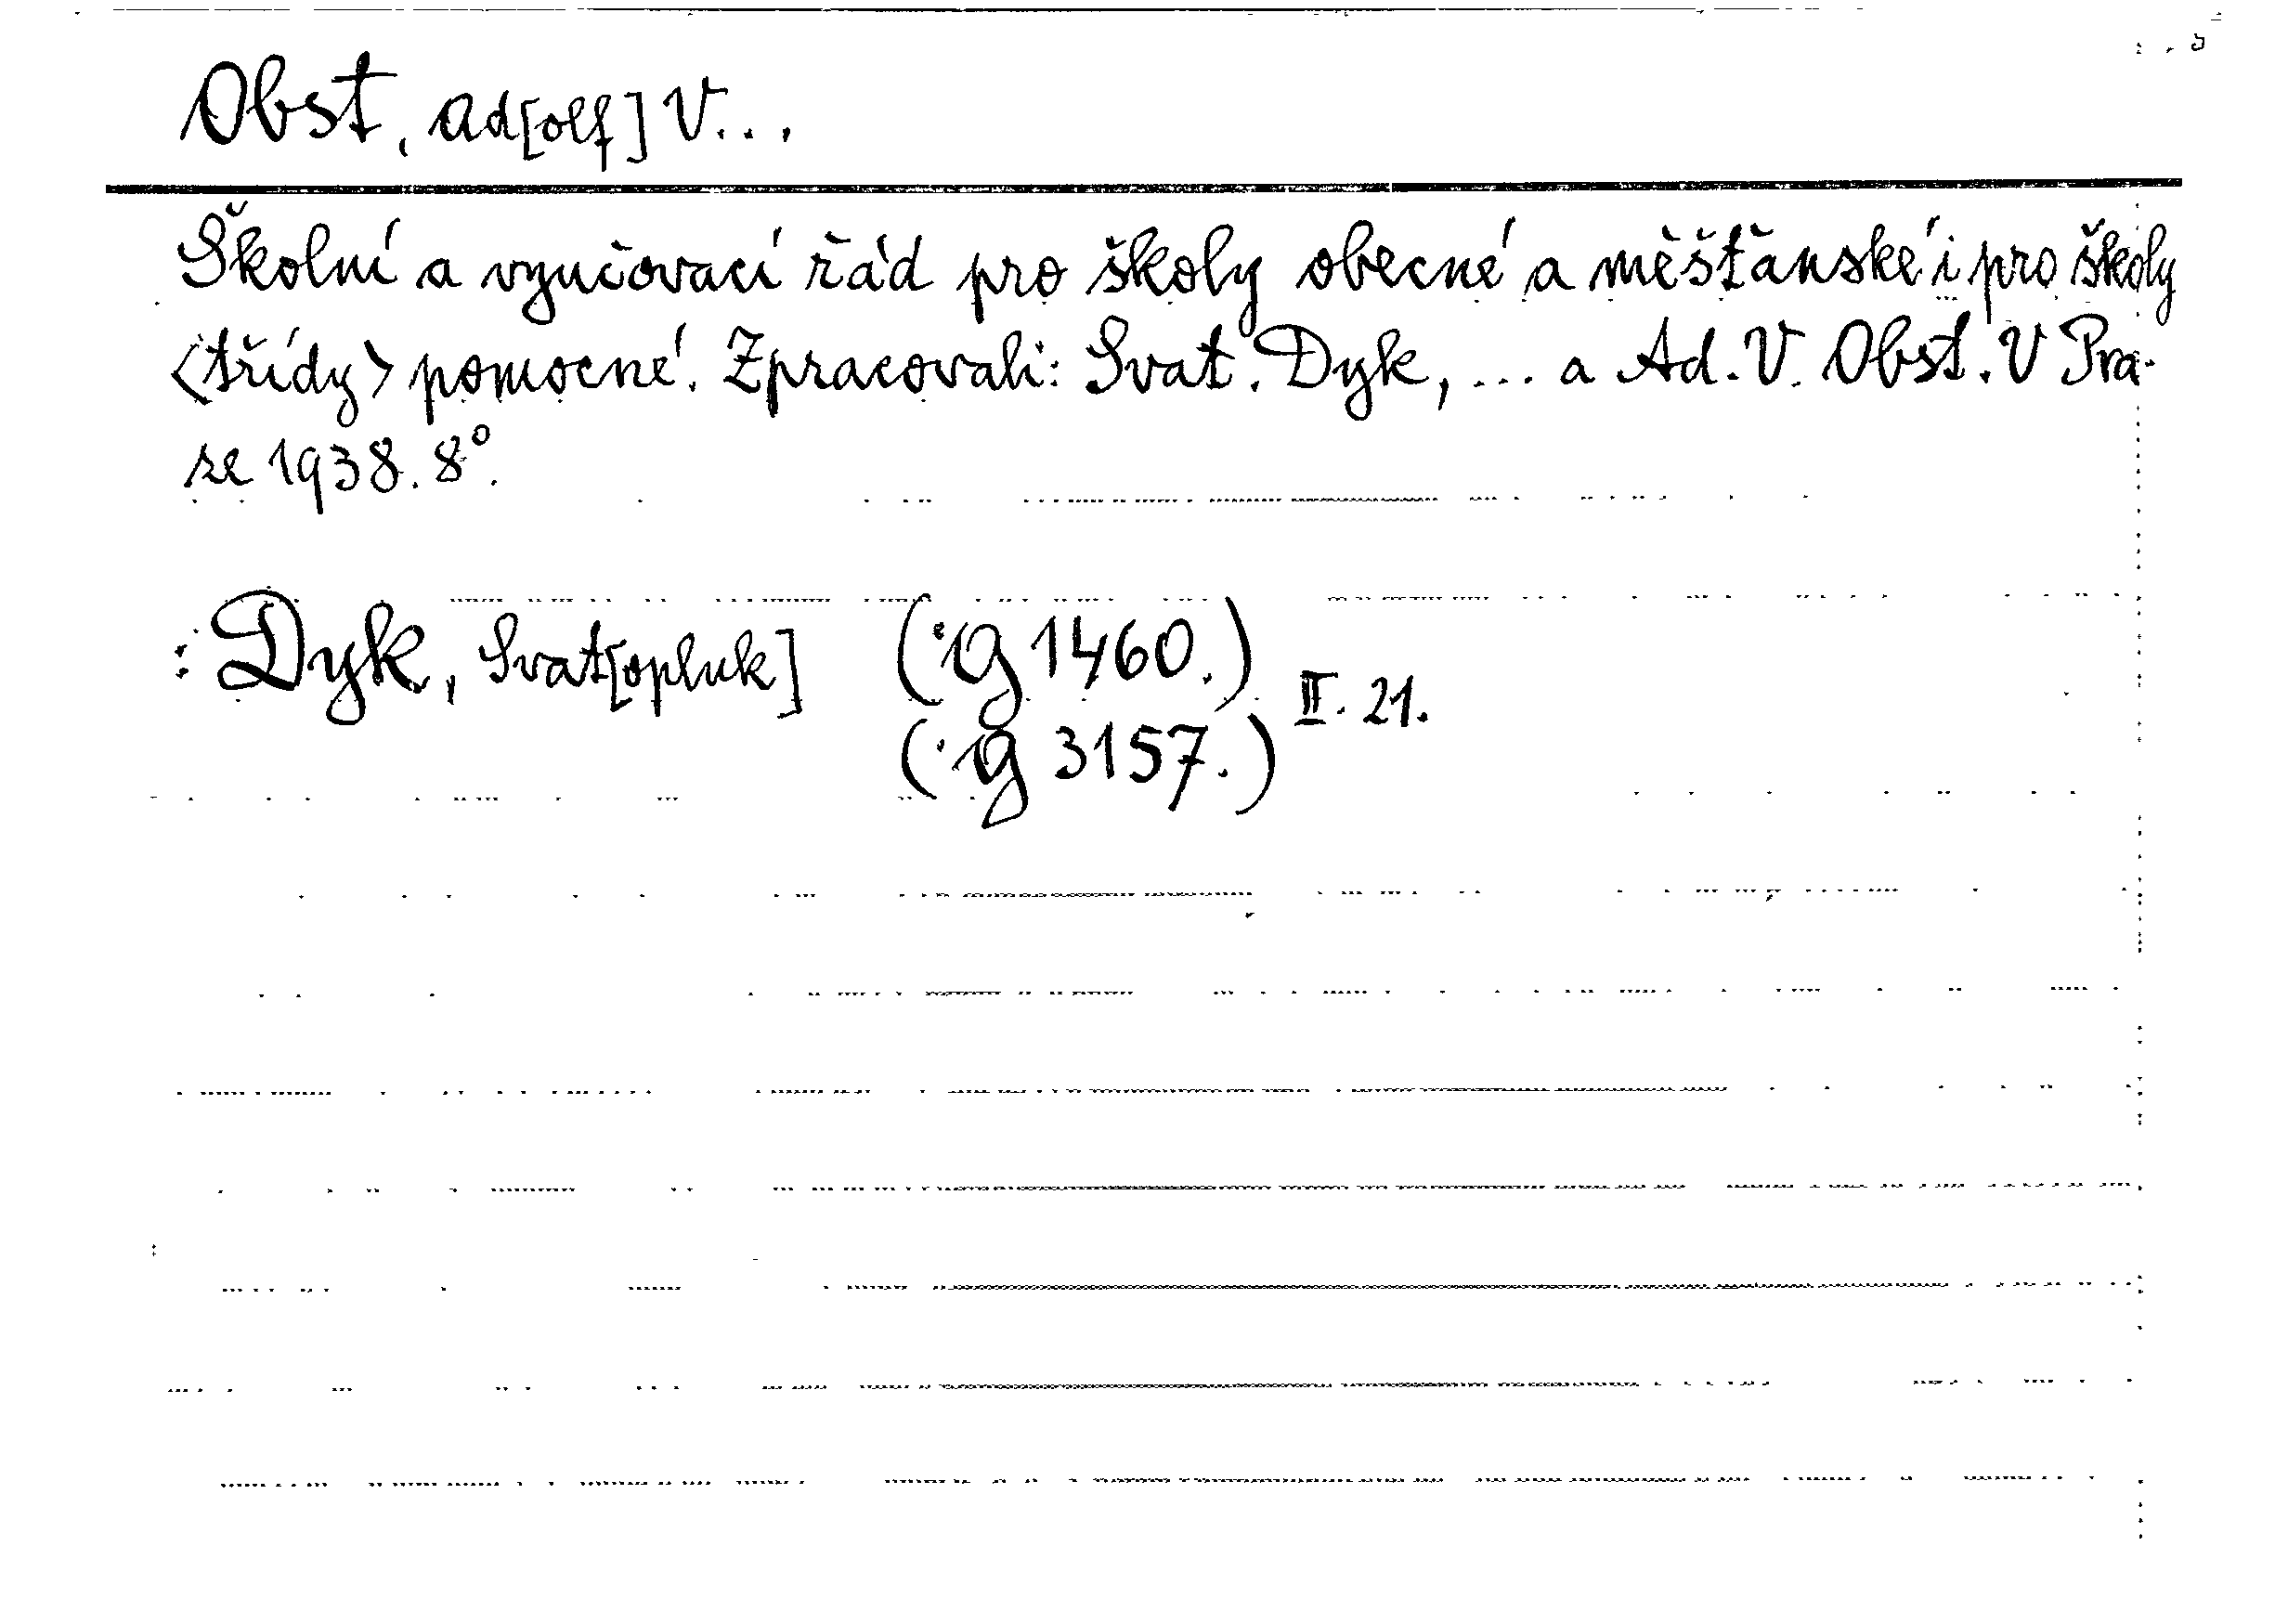 Obst, Ad[olf] V...,
Školní a vyučovací řád pro školy obecné a měšťanské i pro školy
<třídy> pomocné. Zpracovali: Svat. Dyk, ... a Ad. V. Obst. V Pra-
ze 1938. 8°.
: Dyk, Svat[opluk] (Ig 1460.)
II. 21.
(Ig 3157.)